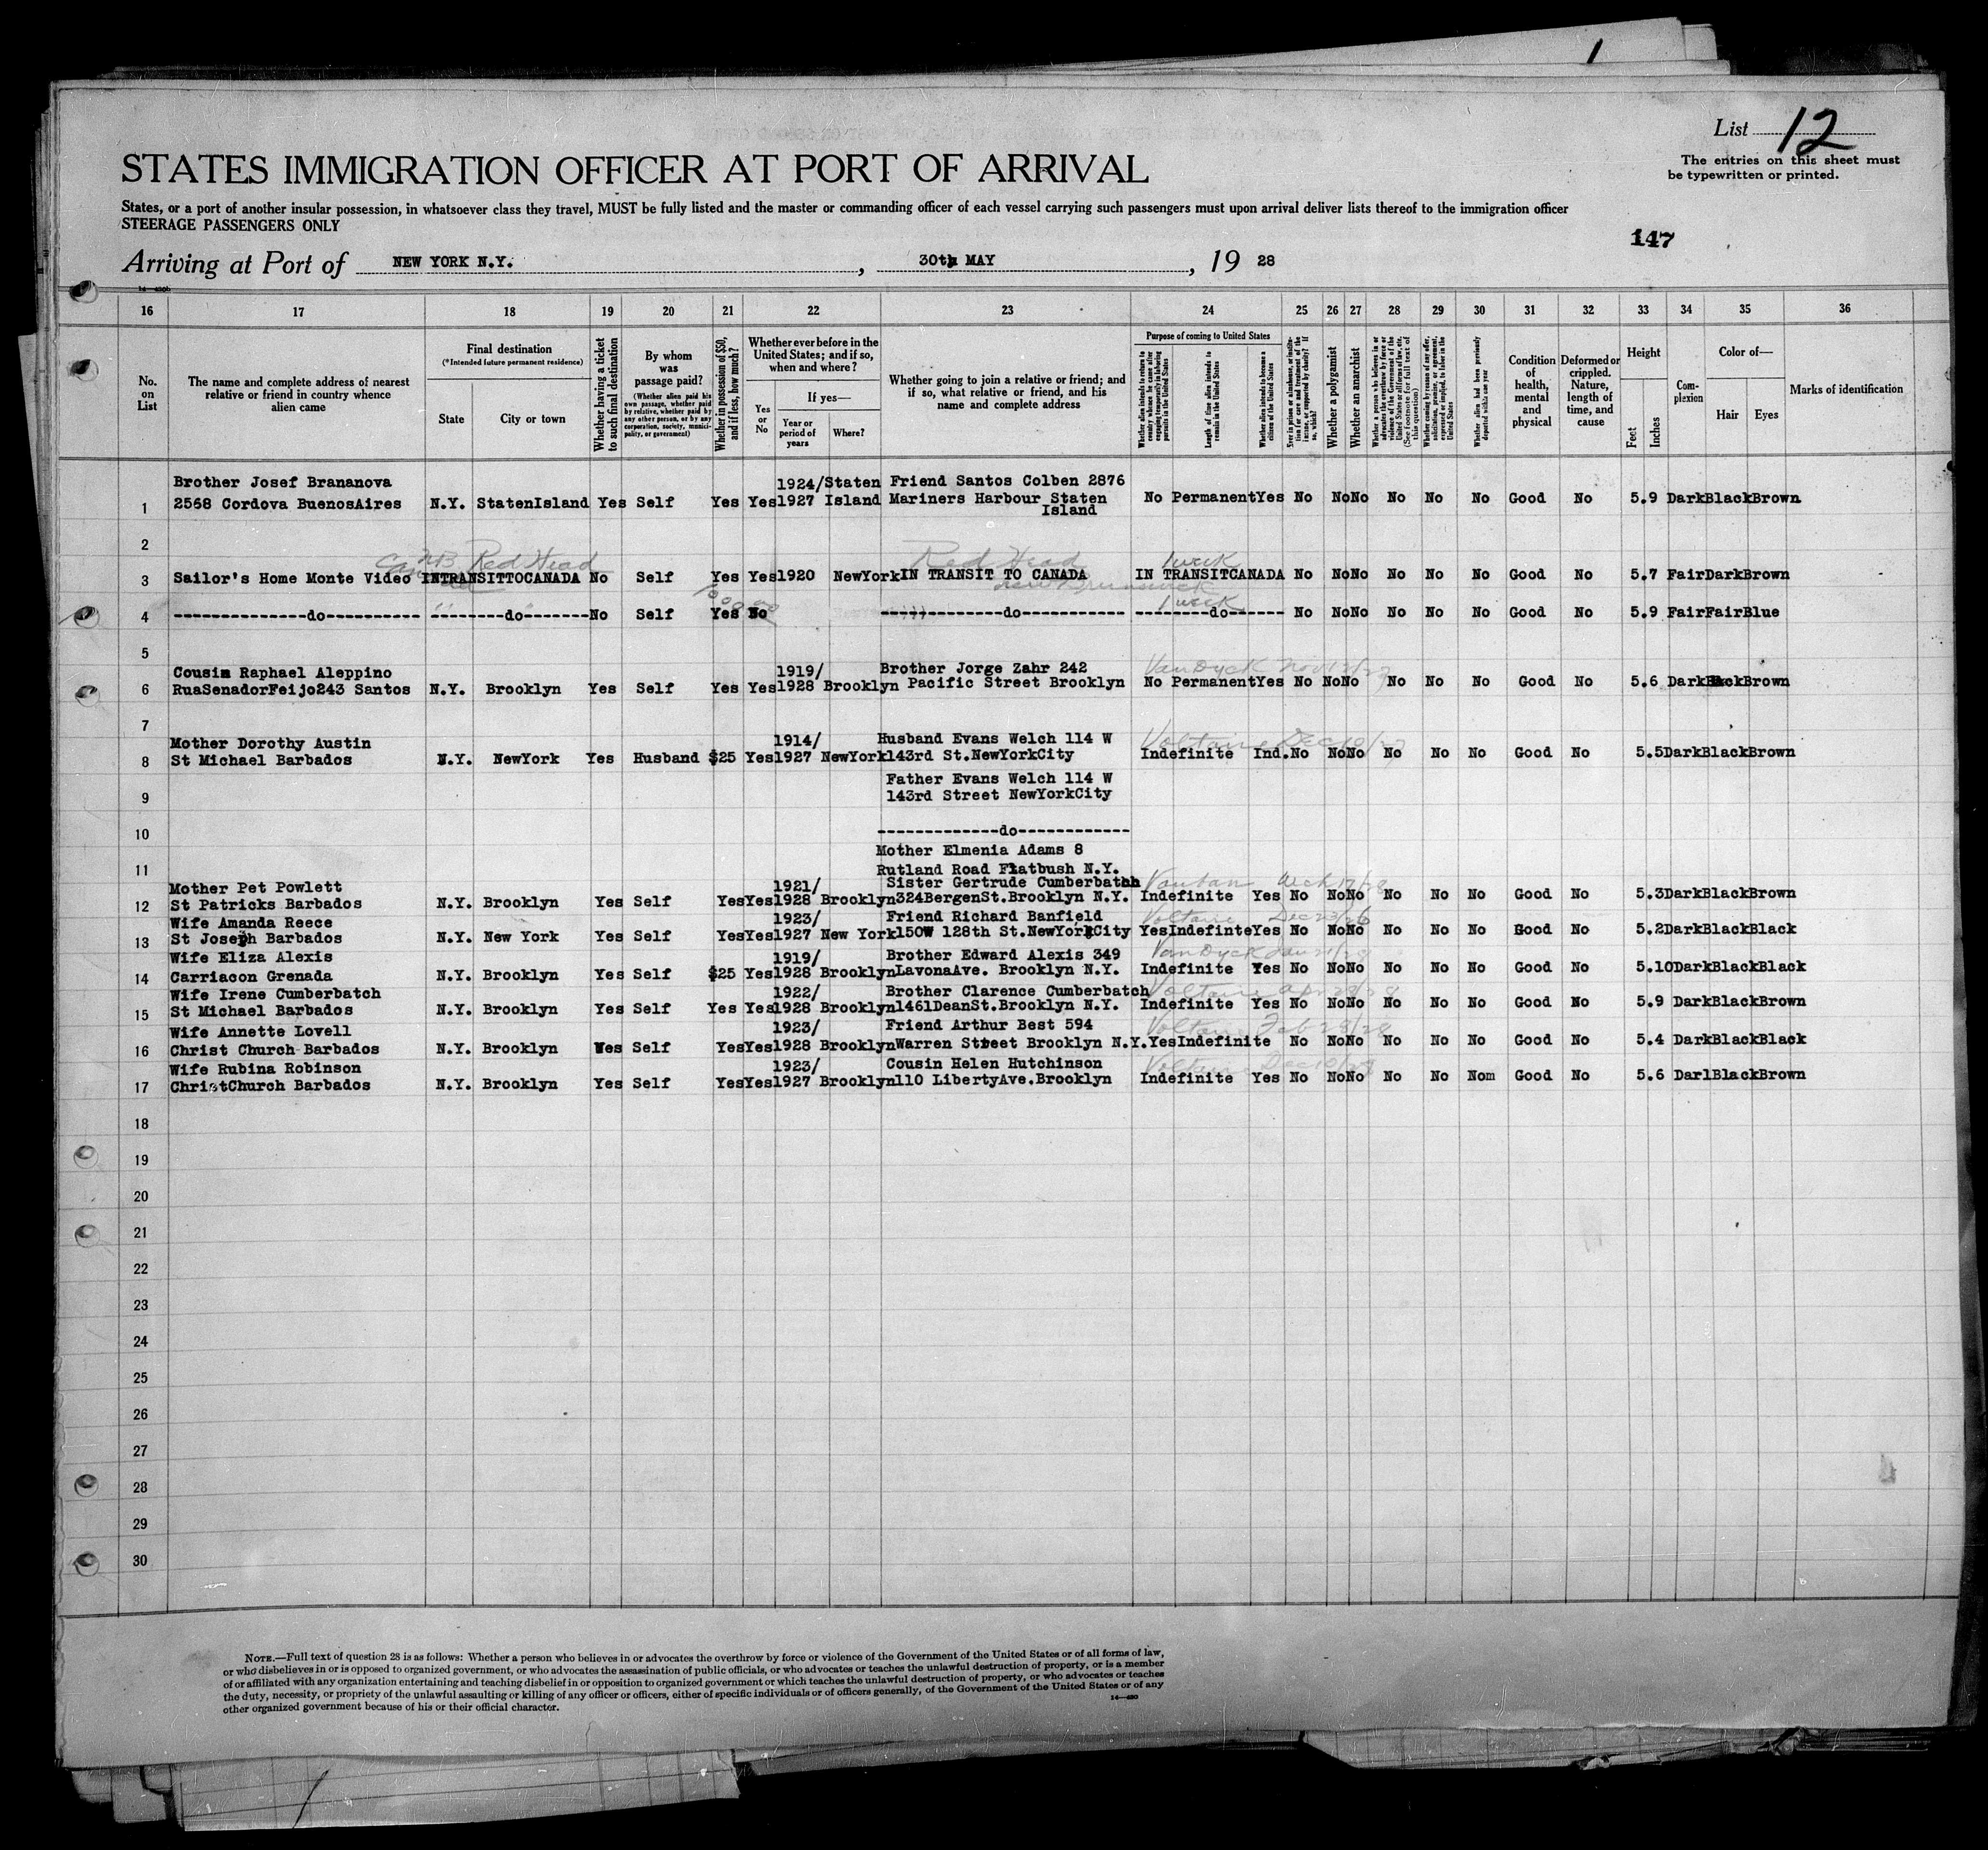 List 12
The entries on this sheet must
be typewritten or printed.
STATES IMMIGRATION OFFICER AT PORT OF ARRIVAL
States, or a port of another insular possession, in whatsoever class they travel, MUST be fully listed and the master or commanding officer of each vessel carrying such passengers must upon arrival deliver lists thereof to the immigration officer
STEERAGE PASSENGERS ONLY
147
Arriving at Port of NEW YORK N.Y. , 30th MAY , 19 28
16 17 18 19 20 21 22 23 24 25 26 27 28 29 30 31 32 33 34 35 36
No. on List
The name and complete address of nearest relative or friend in country whence alien came
Final destination
(*Intended future permanent residence)
State
City or town
Whether having a ticket to such final destination
By whom was passage paid?
(Whether alien paid his own passage, whether paid by relative, whether paid by any other person, or by any corporation, society, municipality, or government)
Whether in possession of $50, and if less, how much?
Whether ever before in the United States; and if so, when and where?
Yes or No
If yes—
Year or period of years
Where?
Whether going to join a relative or friend; and if so, what relative or friend, and his name and complete address
Purpose of coming to United States
Whether alien intends to return to country whence he came after engaging temporarily in laboring pursuits in the United States
Length of time alien intends to remain in the United States
Whether alien intends to become a citizen of the United States
Ever in prison or almshouse, or institution for care and treatment of the insane, or supported by charity? If so, which?
Whether a polygamist
Whether an anarchist
Whether a person who believes in or advocates the overthrow by force or violence of the Government of the United States or all forms of law, etc. (See footnote for full text of this question)
Whether coming by reason of any offer, solicitation, promise, or agreement, expressed or implied, to labor in the United States
Whether alien had been previously deported within one year
Condition of health, mental and physical
Deformed or crippled. Nature, length of time, and cause
Height
Feet
Inches
Complexion
Color of—
Hair
Eyes
Marks of identification
Brother Josef Brananova 1924/Staten Friend Santos Colben 2876
1 2568 Cordova BuenosAires N.Y. StatenIsland Yes Self Yes Yes 1927 Island Mariners Harbour Staten No Permanent Yes No No No No No No Good No 5.9 Dark Black Brown
Island
2
NB Red Head Red Head 1 week
3 Sailor's Home Monte Video INTRANSITTOCANADA No Self Yes Yes 1920 NewYork IN TRANSIT TO CANADA IN TRANSITCANADA No No No No No No Good No 5.7 Fair Dark Brown
New Brunswick
1 week
4 --------------do---------- --------do-------No Self Yes No -------------do------------ --------do------ No No No No No No Good No 5.9 Fair Fair Blue
5
Cousin Raphael Aleppino 1919/ Brother Jorge Zahr 242 VanDyck Nov
6 RuaSenadorFeijo243 Santos N.Y. Brooklyn Yes Self Yes Yes 1928 Brooklyn Pacific Street Brooklyn No Permanent Yes No No No No No No Good No 5.6 Dark Black Brown
7
Mother Dorothy Austin 1914/ Husband Evans Welch 114 W Voltaire Dec 10/27
8 St Michael Barbados N.Y. NewYork Yes Husband $25 Yes 1927 NewYork 143rd St.NewYorkCity Indefinite Ind. No No No No No No Good No 5.5 Dark Black Brown
Father Evans Welch 114 W
9 143rd Street NewYorkCity
10 -------------do------------
Mother Elmenia Adams 8
11 Rutland Road Flatbush N.Y.
Mother Pet Powlett 1921/ Sister Gertrude Cumberbatch Vauban
12 St Patricks Barbados N.Y. Brooklyn Yes Self Yes Yes 1928 Brooklyn 324BergenSt.Brooklyn N.Y. Indefinite Yes No No No No No No Good No 5.3 Dark Black Brown
Wife Amanda Reece 1923/ Friend Richard Banfield Voltaire Dec 23/26
13 St Joseph Barbados N.Y. New York Yes Self Yes Yes 1927 New York 150W 128th St.NewYorkCity Yes Indefinte Yes No No No No No No Good No 5.2 Dark Black Black
Wife Eliza Alexis 1919/ Brother Edward Alexis 349 VanDyck Jan
14 Carriacon Grenada N.Y. Brooklyn Yes Self $25 Yes 1928 Brooklyn LavonaAve. Brooklyn N.Y. Indefinite Yes No No No No No No Good No 5.10 Dark Black Black
Wife Irene Cumberbatch 1922/ Brother Clarence Cumberbatch Voltaire Apr
15 St Michael Barbados N.Y. Brooklyn Yes Self Yes Yes 1928 Brooklyn 1461DeanSt.Brooklyn N.Y. Indefinite Yes No No No No No No Good No 5.9 Dark Black Brown
Wife Annette Lovell 1923/ Friend Arthur Best 594 Voltaire Feb 23/28
16 Christ Church Barbados N.Y. Brooklyn Yes Self Yes Yes 1928 Brooklyn Warren Street Brooklyn N.Y. Yes Indefinite No No No No No No Good No 5.4 Dark Black Black
Wife Rubina Robinson 1923/ Cousin Helen Hutchinson Voltaire Dec
17 ChristChurch Barbados N.Y. Brooklyn Yes Self Yes Yes 1927 Brooklyn 110 LibertyAve.Brooklyn Indefinite Yes No No No No No Nom Good No 5.6 Darl Black Brown
18
19
20
21
22
23
24
25
26
27
28
29
30
NOTE.—Full text of question 28 is as follows: Whether a person who believes in or advocates the overthrow by force or violence of the Government of the United States or of all forms of law,
or who disbelieves in or is opposed to organized government, or who advocates the assassination of public officials, or who advocates or teaches the unlawful destruction of property, or is a member
of or affiliated with any organization entertaining and teaching disbelief in or opposition to organized government or which teaches the unlawful destruction of property, or who advocates or teaches
the duty, necessity, or propriety of the unlawful assaulting or killing of any officer or officers, either of specific individuals or of officers generally, of the Government of the United States or of any
other organized government because of his or their official character.
14—430